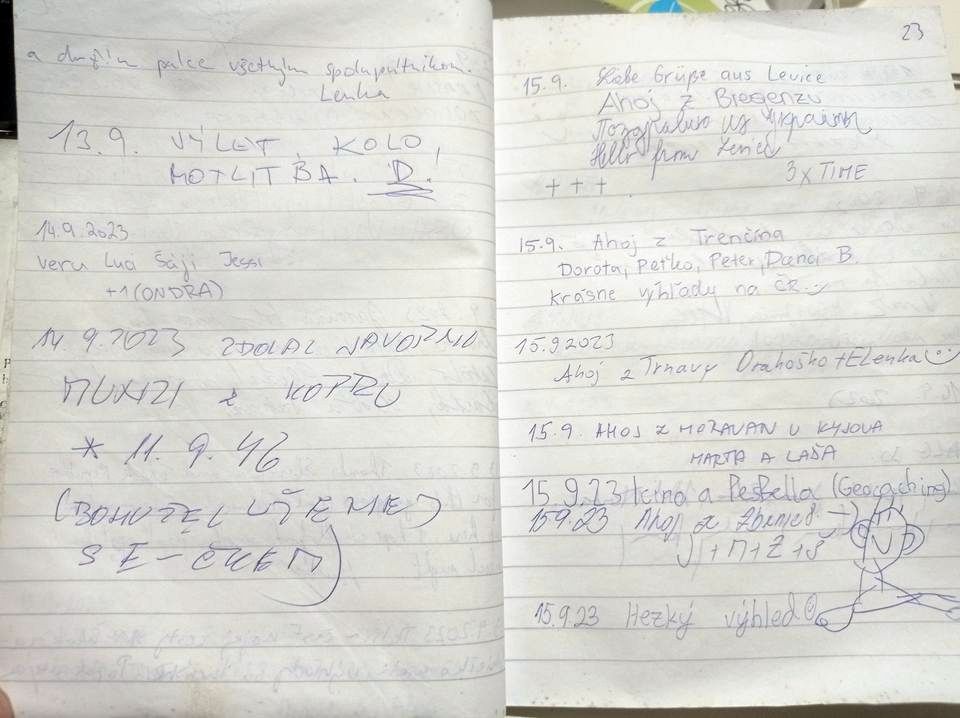 a držím palce všetkým spolupútnikom.
Lenka
13.9. VÝLET, KOLO,
MOTLITBA. D!
14.9.2023
Veru Luci Šáji Jessi
+1 (ONDRA)
14.9.2023 ZDOLAL JAVOŘINU
Z KOPRU
* 11.9.46
(BOHUŽEL UŠ E NE
SE-ČKEM)
23
15.9. Liebe Grüße aus Levice
Ahoj z Bregenzu
Поздравляю из Украины
Hello from
+ + +
3x TIME
15.9. Ahoj z Trenčína
Dorota, Peťko, Peter, Dana B.
krásne výhľady na ČR
15.9.2023
Ahoj z Trnavy Drahoško + Elenka
15.9. AHOJ Z MORAVAN U KYJOVA
MARTA A LAĎA
15.9.23 a (Geocaching)
15.9.23 Ahoj ze
J+M+Z+J
15.9.23 Hezký výhled